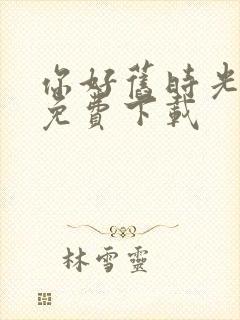 你好舊時光
免費下載
林雪靈